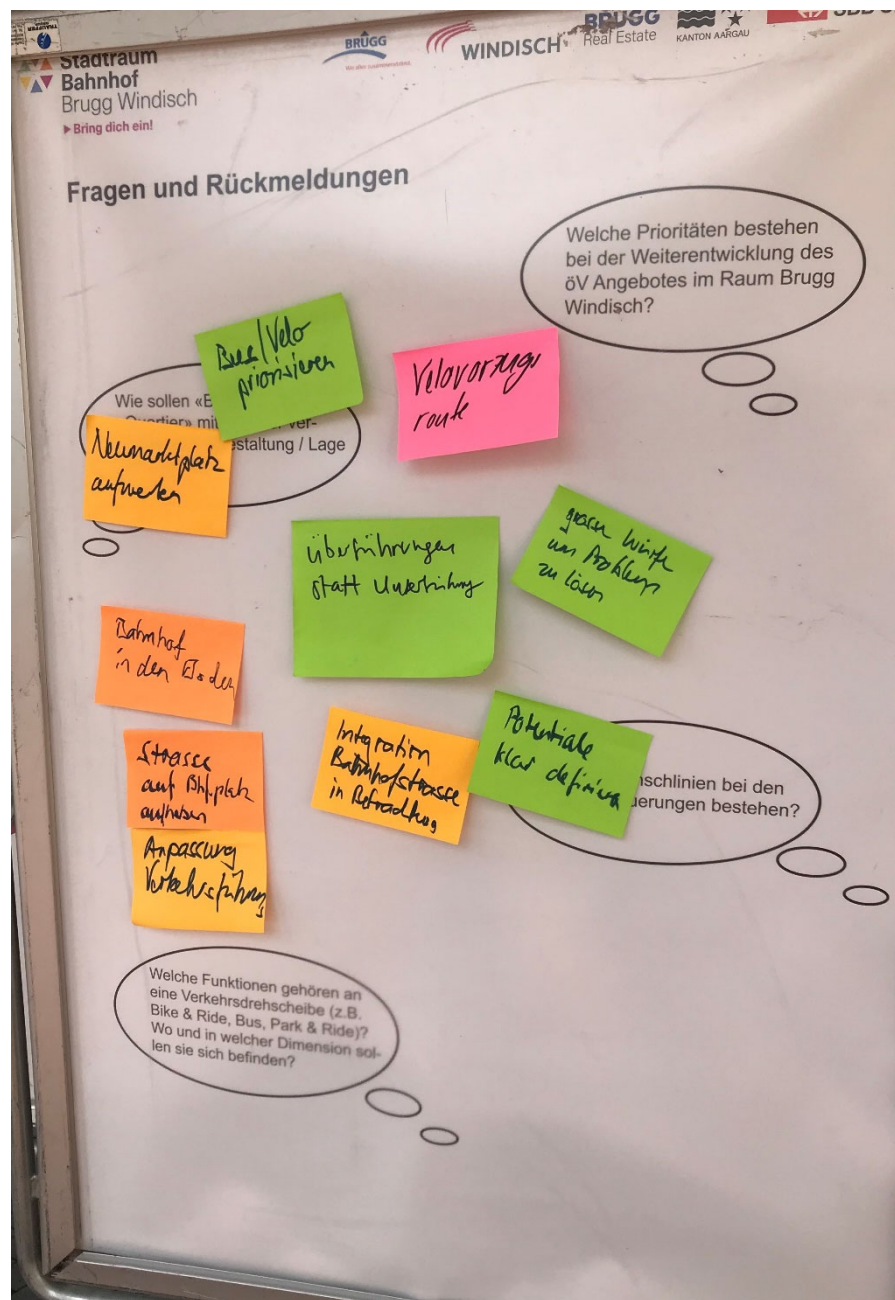 TRAUFFER
BRUGG
WINDISCH
BRUGG
Real Estate
KANTON AARGAU
Stadtraum
Bahnhof
Brugg Windisch
Bring dich ein!
Fragen und Rückmeldungen
Welche Prioritäten bestehen
bei der Weiterentwicklung des
öV Angebotes im Raum Brugg
Windisch?
Bus/Velo
priorisieren
Velovorzugs
route
Wie sollen «E
Quartier» mi
ver-
staltung / Lage
Neumarktplatz
aufwerten
Überführungen
statt Unterführung
um Probleme
zu lösen
Bahnhof
in den Boden
Strasse
auf Bhf.platz
aufheben
Anpassung
Verkehrsführung
Integration
Bahnhofstrasse
in
Potentiale
klar definieren
nschlinien bei den
uerungen bestehen?
Welche Funktionen gehören an
eine Verkehrsdrehscheibe (z.B.
Bike & Ride, Bus, Park & Ride)?
Wo und in welcher Dimension sol-
len sie sich befinden?